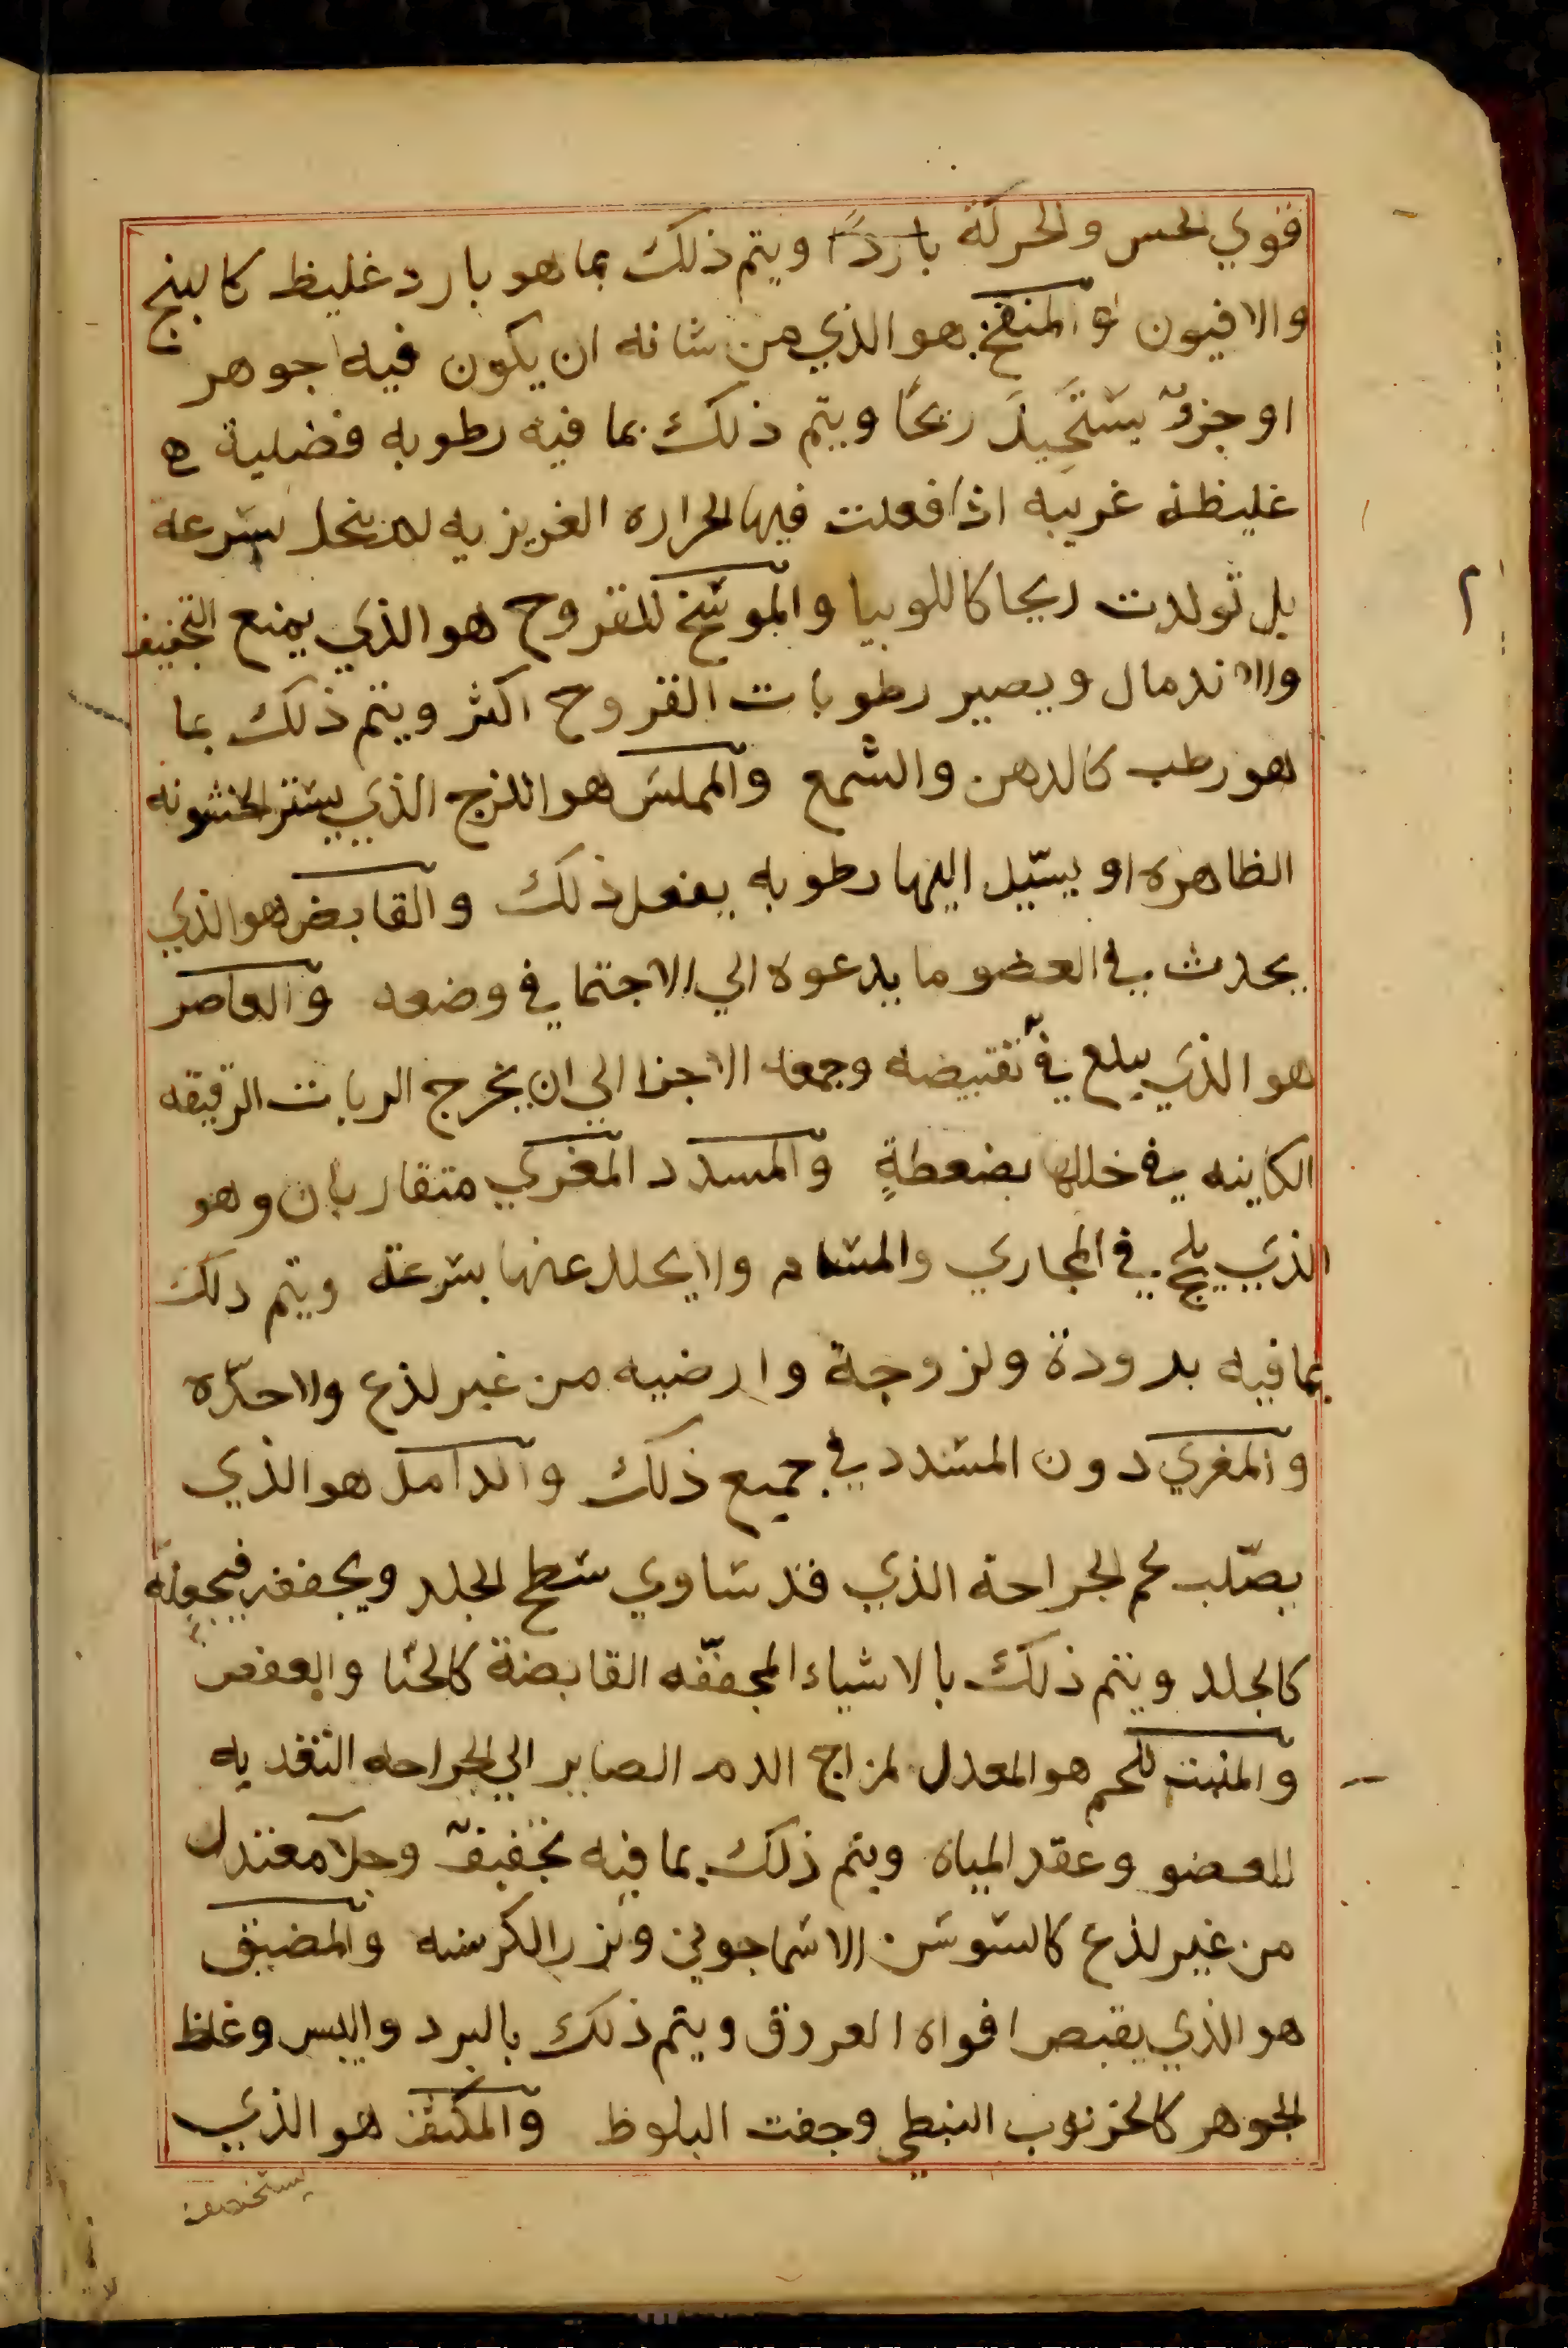 قوي الحس والحركة باردًا ويتم ذلك بما هو بارد غليظ كالبنج
والافيون والمنفخ هو الذي من شانه ان يكون فيه جوهر
او جزؤ يستحيل ريحًا ويتم ذلك بما فيه رطوبه فضلية
غليظة غريبه اذا فعلت فيها الحراره الغريزيه لم ينحل بسرعه
بل تولدت ريحا كاللوبيا والموسخ للقروح هو الذي يمنع التجفيف
والاندمال ويصير رطوبات القروح اكثر ويتم ذلك بما
هو رطب كالدهن والشمع والمملس هو اللزج الذي يستر الخشونه
الظاهره او يسّيل اليها رطوبه يفعل ذلك والقابض هو الذي
يحدث في العضو ما يدعوه الي الاجتما في وضعه والعاصر
هو الذي يبلع في تقبيضه وجمعه الاجزا الي ان يخرج الربات الرقيقه
الكاينه في خللها بضعطةٍ والمسدد المغري متقاربان وهو
الذي يلج في المجاري والمسام ولا يحلل عنها بسرعة ويتم دلك
بما فيه برودة ولزوجة وارضيه من غير لذع ولا حدّه
والمغري دون المسدد في جميع ذلك والدامل هو الذي
يصّلب لحم الجراحة الذي قد ساوي سطح الجلد ويجففه فيجعله
كالجلد ويتم ذلك بالاشياء المجففّه القابضة كالحنّا والعفص
والمنبت للحم هو المعدل لمزاج الدم الصاير الي الجراحه التغديه
للعضو وعقد المياه ويتم ذلك بما فيه تجفيف وجلا معتدل
من غير لذع كالسوسن الاسماجوني وبزر الكرسنه والمضيق
هو الذي يقبص افواه العروق ويتم ذلك بالبرد واليبس وغلظ
الجوهر كالخرنوب النبطي وجفت البلوط والمكثف هو الذي
يستخصف